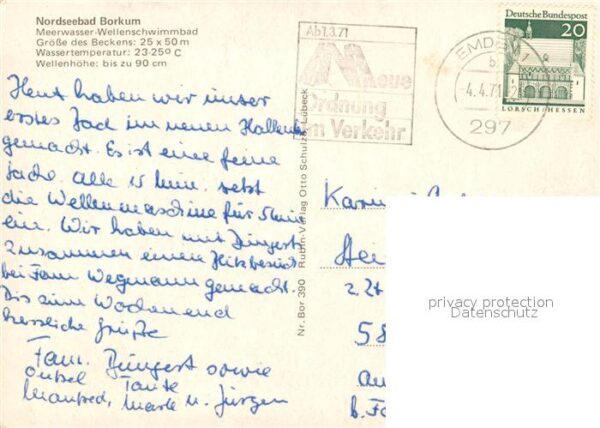 Nordseebad Borkum
Meerwasser-Wellenschwimmbad
Größe des Beckens: 25 x 50 m
Wassertemperatur: 23-25° C
Wellenhöhe: bis zu 90 cm
Heut haben wir unser
erstes Bad im neuen Hallenb
gemacht. Es ist eine feine
Sache. alle 15 Min. setzt
die Wellenmaschine für 5 Min
ein. Wir haben mit Büngerts
zusammen einen Hitzbesuch
bei Fam Wegmann gemacht.
Bis zum Wochenend
herzliche Grüße
Fam. Büngert sowie
Onkel Tante
Manfred, Marle u. Jürgen
Nr. Bor 390 Rubin-Verlag Otto Schulze, Lübeck
Ab 1.3.71
Neue
Ordnung
im Verkehr
EMDEN
b
-4.4.71
297
Deutsche Bundespost
20
LORSCH/HESSEN
Karin
z. Zt
58
b. Fa
privacy protection
Datenschutz